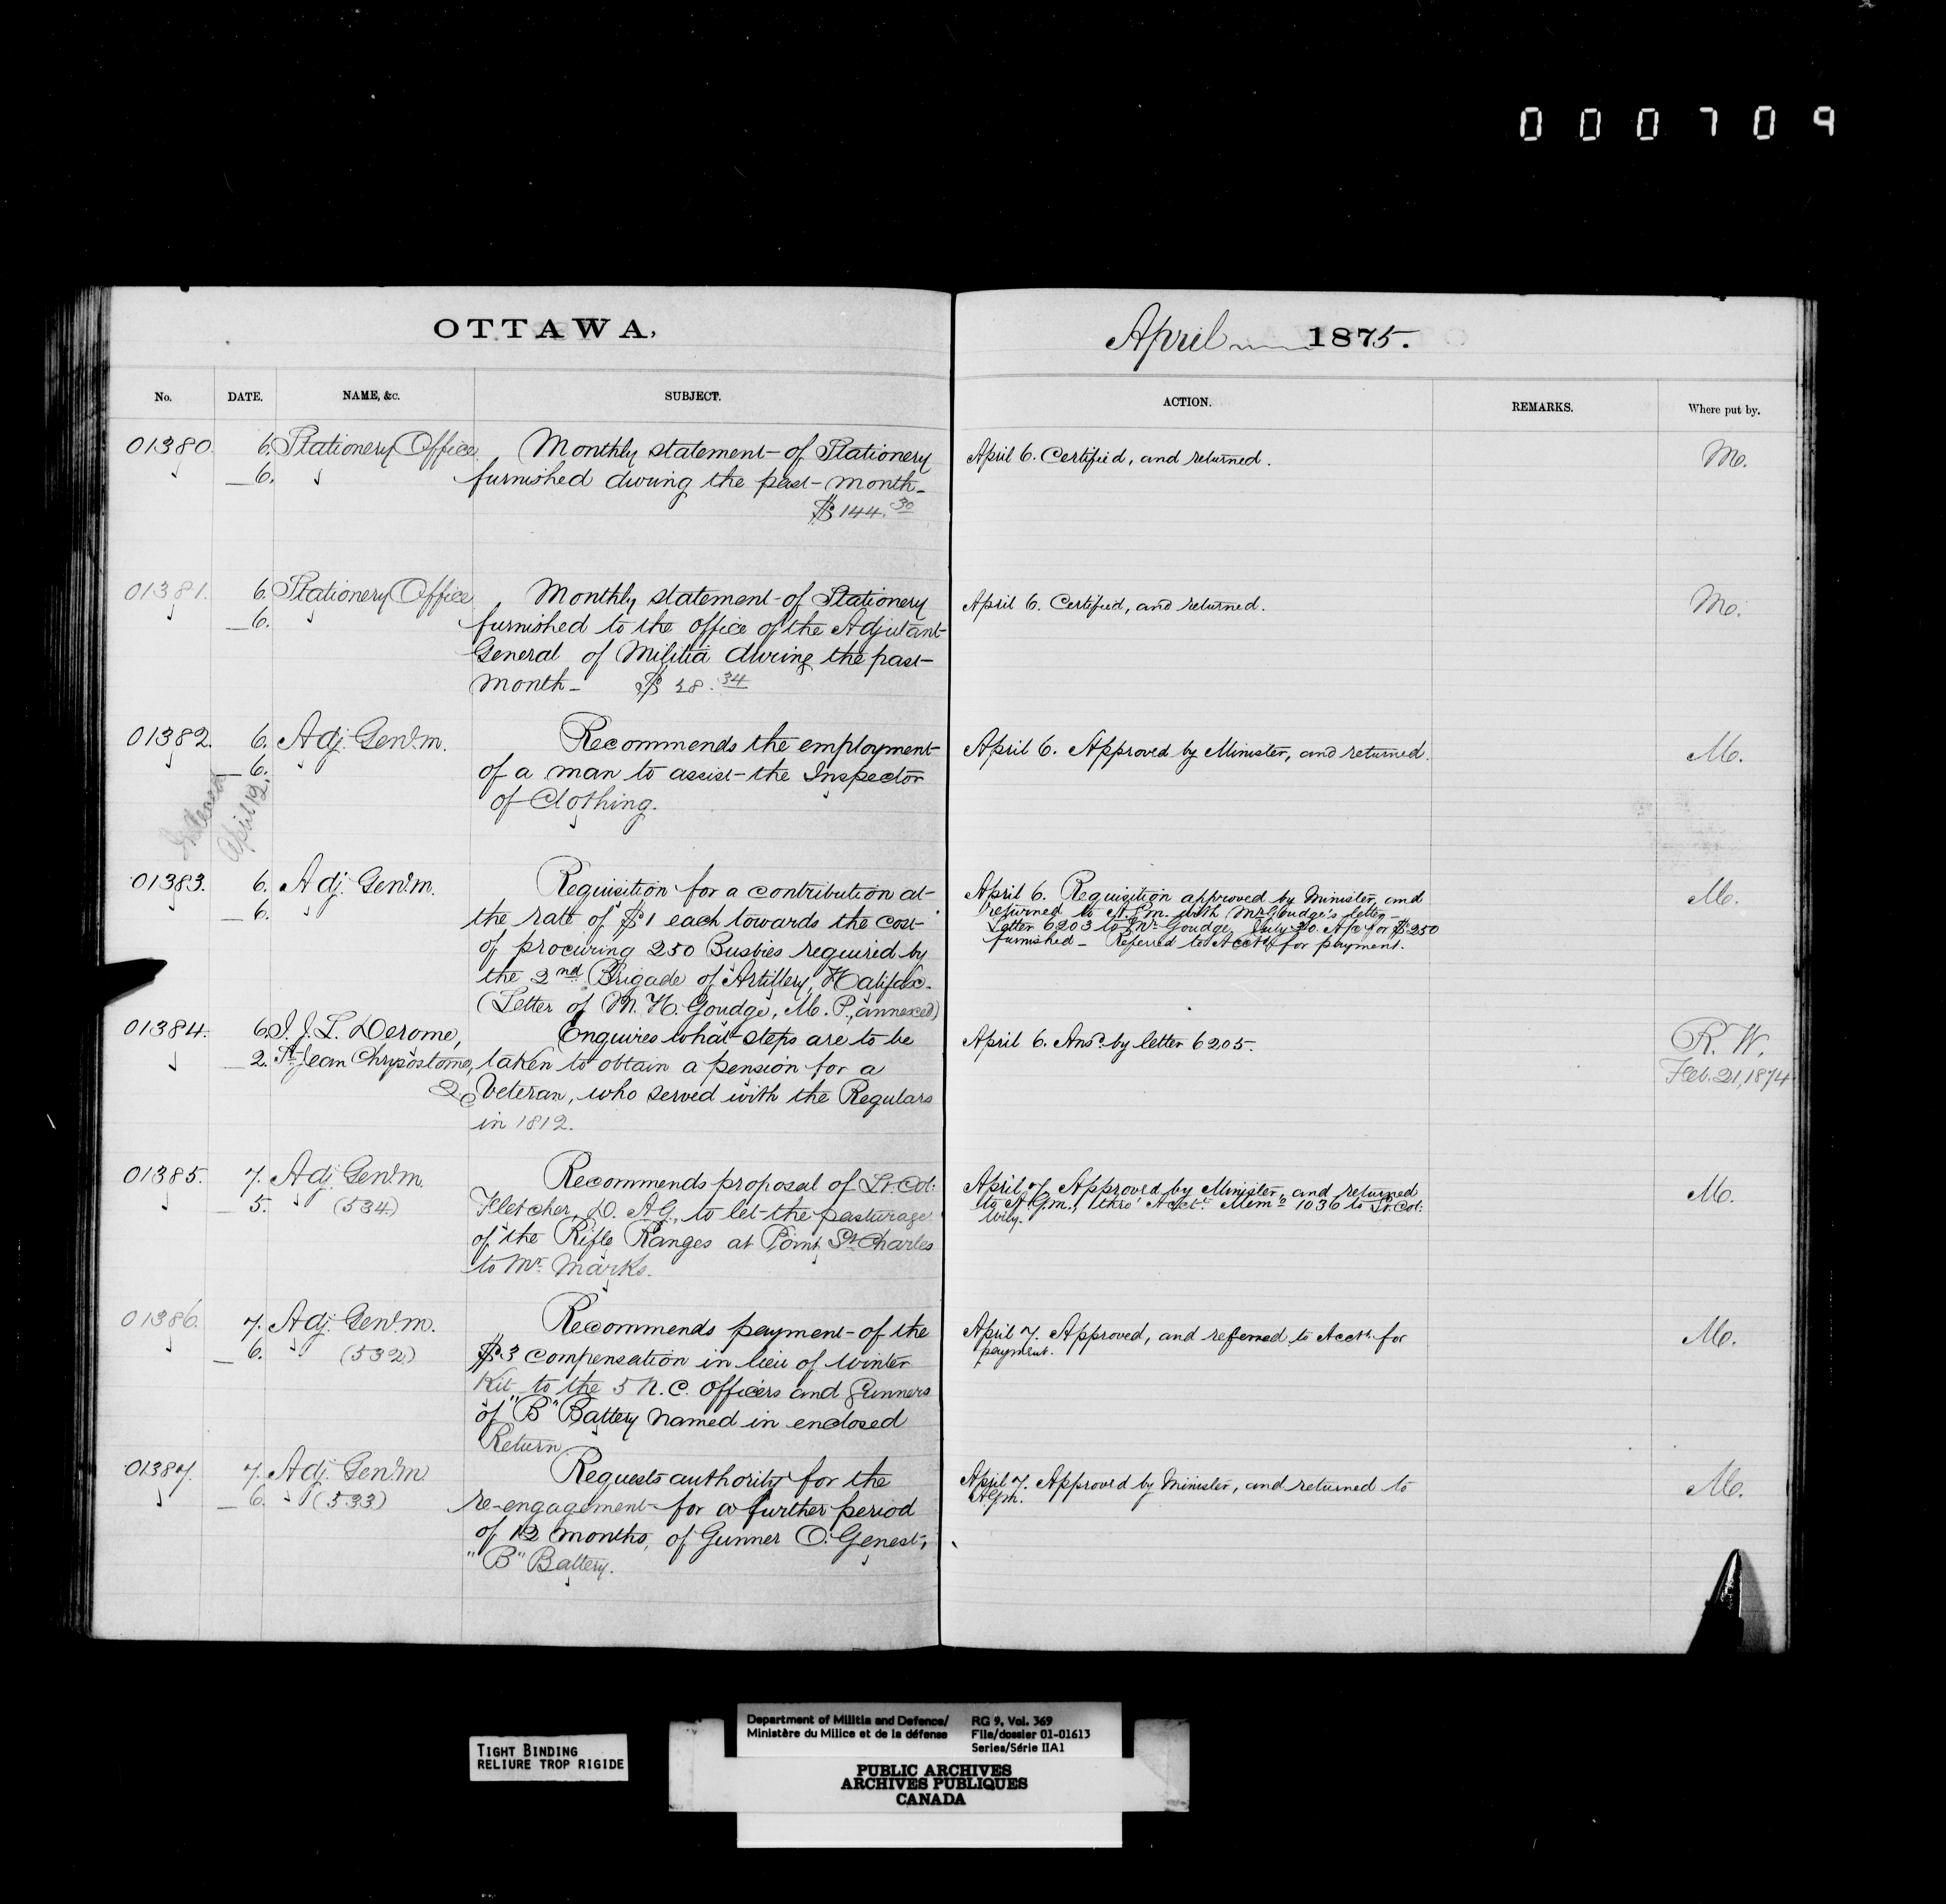 000709
OTTAWA,
April 1875.
No. DATE. NAME, &c. SUBJECT. ACTION. REMARKS. Where put by.
01380. 6. Stationery Office. Monthly statement of Stationery
6. furnished during the past month
$144.30
April 6. Certified, and returned.
Mo.
01381. 6. Stationery Office Monthly statement of Stationery
6. furnished to the office of the Adjutant
General of Militia during the past
month $ 38.34
April 6. Certified, and returned.
Mo.
01382. 6. Adj. Genl. M. Recommends the employment
6. of a man to assist the Inspector
of Clothing.
April 12.
April 6. Approved by Minister, and returned.
M.
01383. 6. Adj. Genl. M. Requisition for a contribution at
6. the rate of $1 each towards the cost
of procuring 250 Busbies required by
the 2nd Brigade of Artillery, Halifax.
(Letter of M. H. Goudge, M. P., annexed)
April 6. Requisition approved by Minister, and
returned to A.G.M. with Mr Goudge's letter
Letter 6203 to Mr. Goudge July 30. A/c for $250
furnished – Referred to Acct. for payment.
M.
01384. 6. J. L. Derome, Enquires what steps are to be
2. St. Jean Chrysostome, taken to obtain a pension for a
Q. Veteran, who served with the Regulars
in 1812.
April 6. Ansd. by letter 6205.
R. W.
Feb. 21, 1874
01385. 7. Adj. Genl. M. Recommends proposal of Lt. Col.
5. (534) Fletcher, D. A.G., to let the pasturage
of the Rifle Ranges at Point St. Charles
to Mr. Marks.
April 7. Approved by Minister, and returned
to A.G.M., thro' Acct. Memo 1036 to Lt. Col.
Wily.
M.
01386. 7. Adj. Genl. M. Recommends payment of the
6. (532) $3 compensation in lieu of Winter
Kit to the 5 N. C. Officers and Gunners
of "B" Battery named in enclosed
Return
April 7. Approved, and referred to Acct. for
payment.
M.
01387. 7. Adj. Genl. M. Requests authority for the
6. (533) re-engagement for a further period
of 12 months, of Gunner O. Genest,
"B" Battery.
April 7. Approved by Minister, and returned to
A.G.M.
M.
TIGHT BINDING
RELIURE TROP RIGIDE
Department of Militia and Defence/
Ministère du Milice et de la défense
RG 9, Vol. 369
File/dossier 01-01613
Series/Série IIA1
PUBLIC ARCHIVES
ARCHIVES PUBLIQUES
CANADA